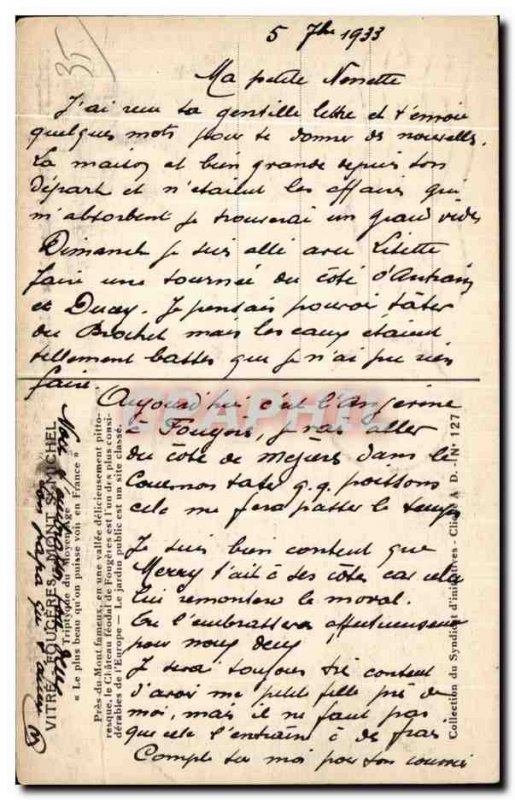 35
5 7bre 1933
Ma petite Nenette
J'ai reçu ta gentille lettre et t'envoie
quelques mots pour te donner de nouvelles.
La maison est bien grande depuis ton
départ et n'étaient les affaires qui
m'absorbent je trouverai un grand vide
Dimanche je suis allé avec Lisette
faire une tournée du côté d'Antrain
et Ducey. Je pensais pouvoir tâter
du Brochet mais les eaux étaient
tellement basses que je n'ai pu rien
faire.
Aujourd'hui c'est l'Angevine
à Fougères, je vais aller
du côté de Mézières dans le
Couesnon tater q.q. poissons
cela me fera passer le temps
Je suis bien content que
Merry t'ait à ses côtés car cela
lui remontera le moral.
Tu l'embrassera affectueusement
pour nous deux
Je serai toujours très content
d'avoir ma petite fille près de
moi, mais il ne faut pas
que cela l'entraine à des frais
Compte sur moi pour ton courrier
ton papa qui t'aime
VITRÉ - FOUGÈRES - MONT St-MICHEL
Triptyque du Moyen-Age
« Le plus beau qu'on puisse voir en France »
Près du Mont fameux, en une vallée délicieusement pitto-
resque, le Château féodal de Fougères est l'un des plus consi-
dérables de l'Europe — Le jardin public est un site classé.
Collection du Syndicat d'initiatives - Cliché A. D. - N° 127